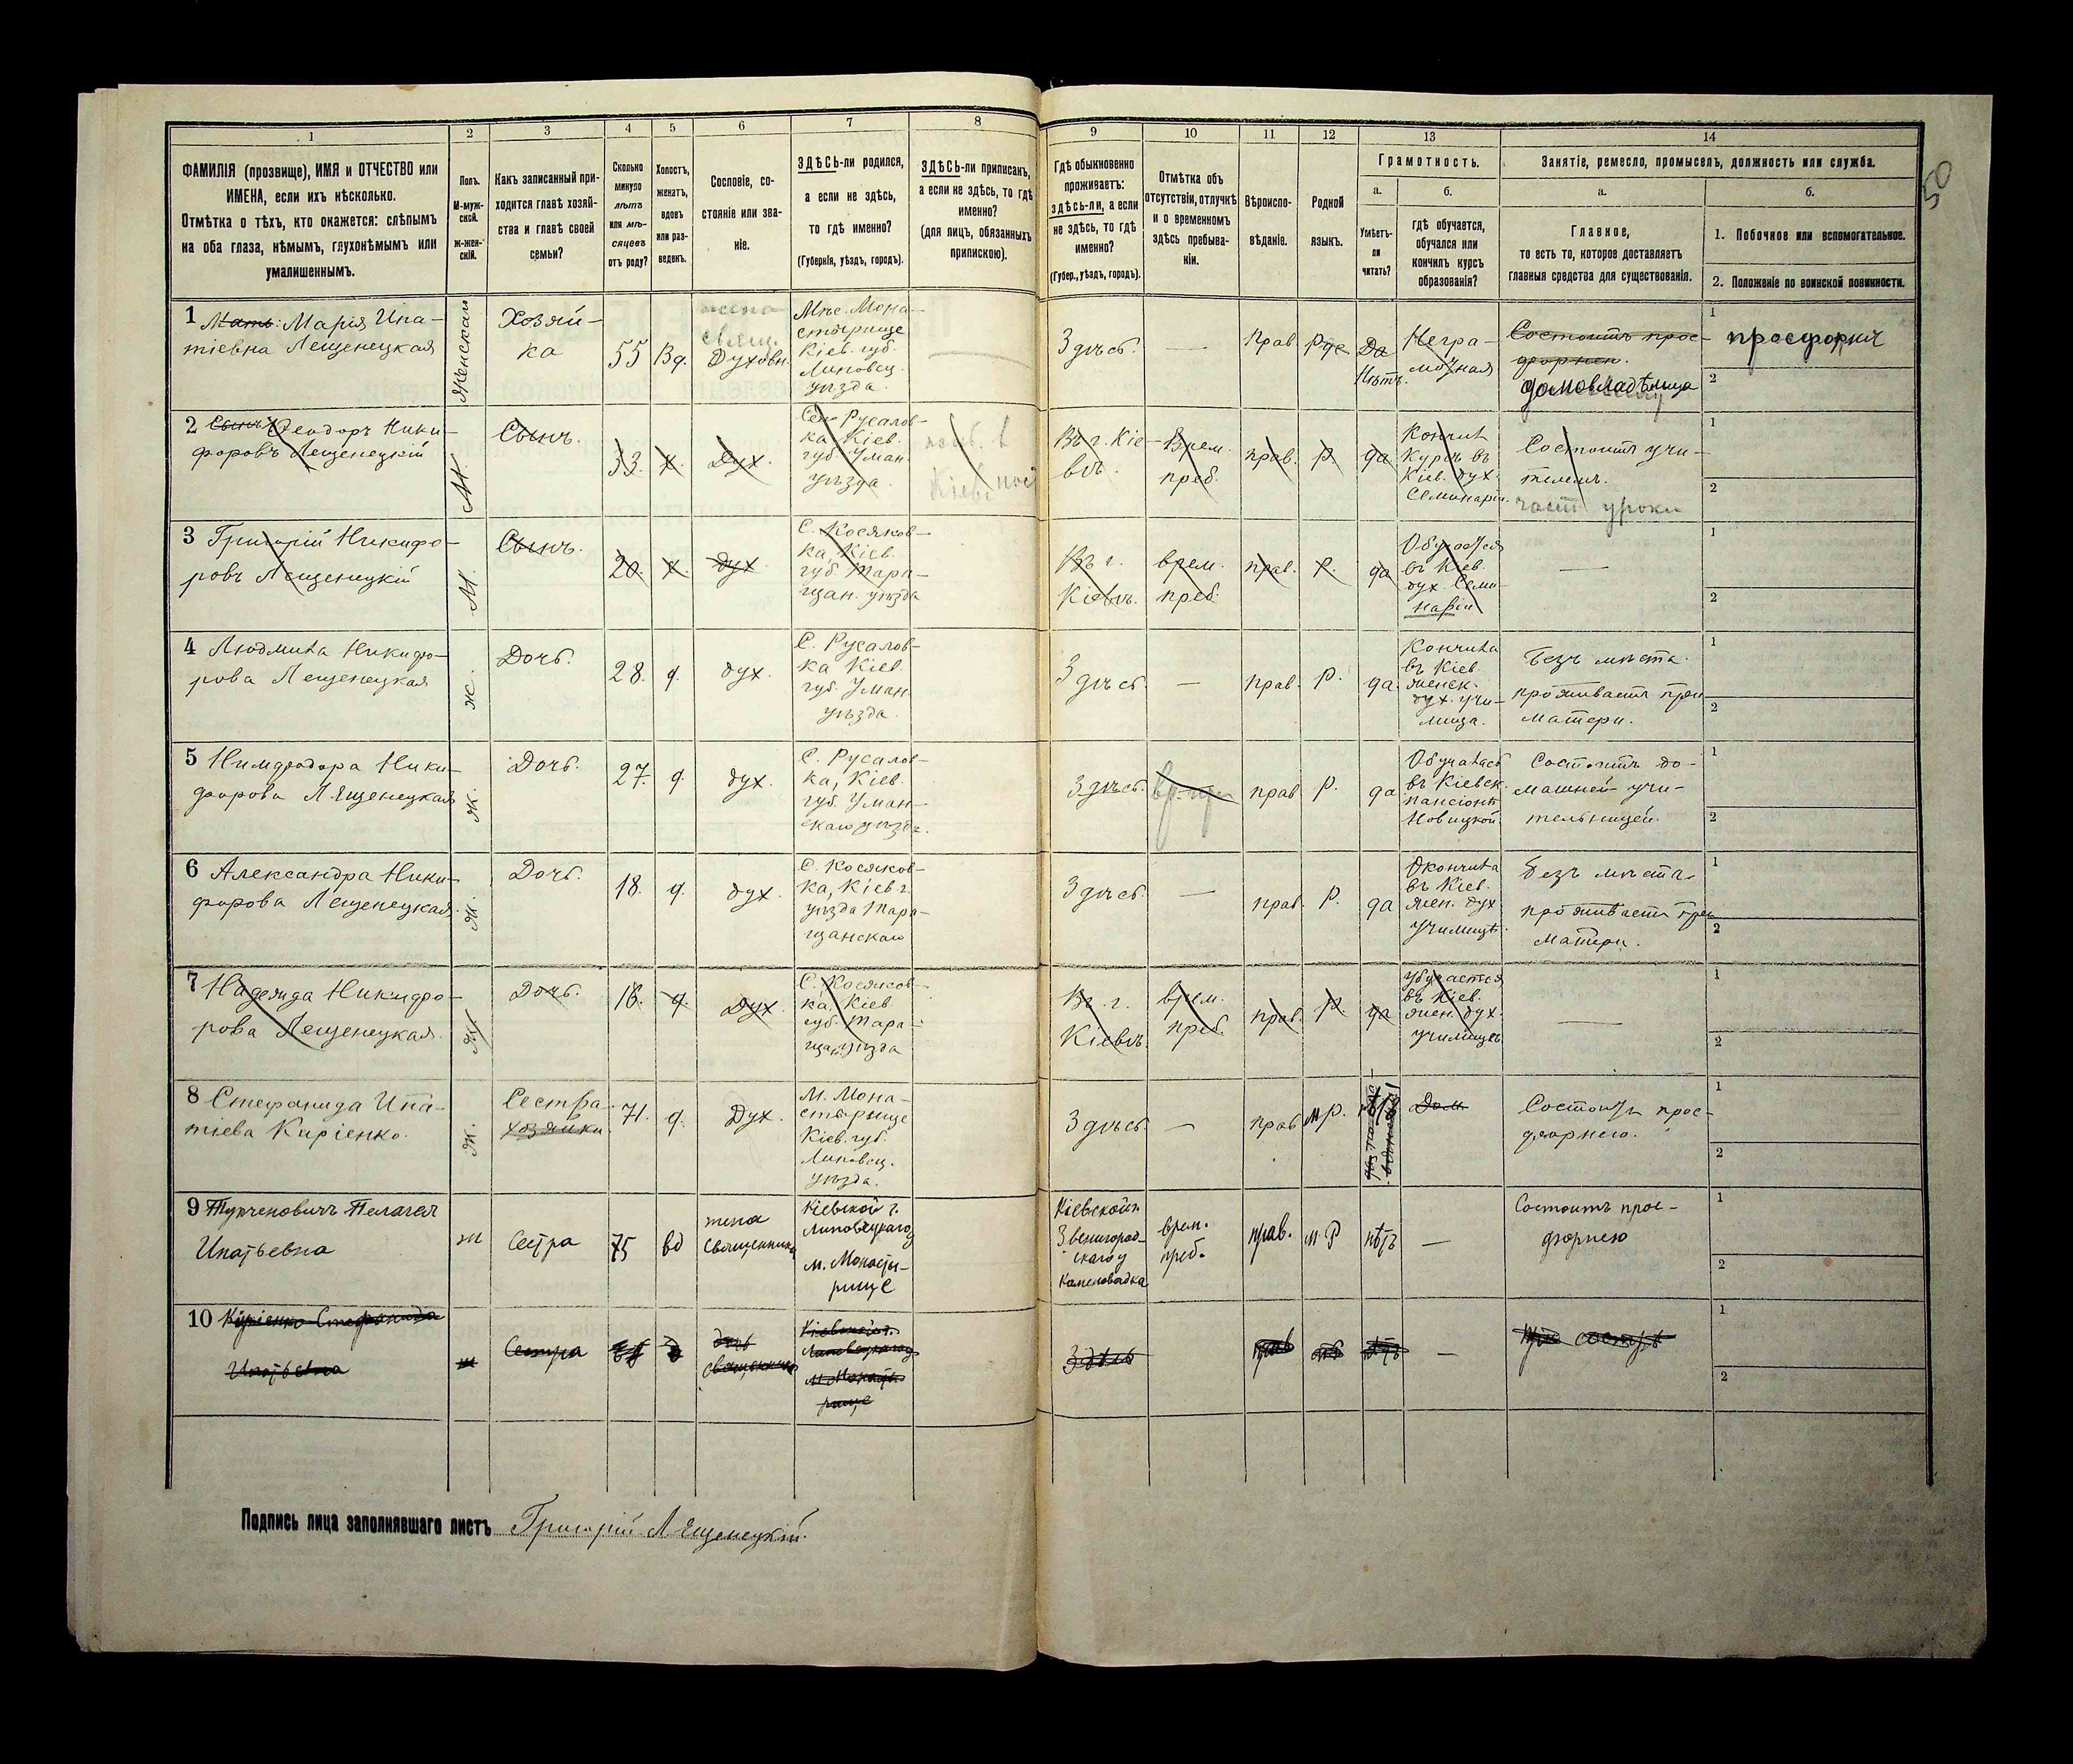 50
1
2
3
4
5
6
7
8
9
10
11
12
13
14
ФАМИЛІЯ (прозвище), ИМЯ и ОТЧЕСТВО или
ИМЕНА, если ихъ нѣсколько.
Отмѣтка о тѣхъ, кто окажется: слѣпымъ
на оба глаза, нѣмымъ, глухонѣмымъ или
умалишеннымъ.
Полъ.
М-муж-
ской.
Ж-жен-
скій.
Какъ записанный при-
ходится главѣ хозяй-
ства и главѣ своей
семьи?
Сколько
минуло
лѣтъ
или мѣ-
сяцевъ
отъ роду?
Холостъ,
женатъ,
вдовъ
или раз-
веденъ.
Сословіе, со-
стояніе или зва-
ніе.
ЗДѢСЬ-ли родился,
а если не здѣсь,
то гдѣ именно?
(Губернія, уѣздъ, городъ).
ЗДѢСЬ-ли приписанъ,
а если не здѣсь, то гдѣ
именно?
(для лицъ, обязанныхъ
припискою).
Гдѣ обыкновенно
проживаетъ:
здѣсь-ли, а если
не здѣсь, то гдѣ
именно?
(Губер., уѣздъ, городъ).
Отмѣтка объ
отсутствіи, отлучкѣ
и о временномъ
здѣсь пребыва-
ніи.
Вѣроиспо-
вѣданіе.
Родной
языкъ.
Грамотность.
а.
б.
Умѣетъ-
ли
читать?
гдѣ обучается,
обучался или
кончилъ курсъ
образованія?
Занятіе, ремесло, промыселъ, должность или служба.
а.
б.
Главное,
то есть то, которое доставляетъ
главныя средства для существованія.
1. Побочное или вспомогательное.
2. Положеніе по воинской повинности.
1 Мать: Марія Ипа-
тіевна Лещенецкая
Женская
Хозяй-
ка
55
Вд.
жена
свящ.
Духовн.
Мѣс. Мона-
стырище
Кіев. губ.
Липовец.
уѣзда.
Здѣсь.
—
Прав
Рус
Да
Нѣтъ.
Негра-
мотная
Состоитъ прос-
форнею.
домовладѣлица
1 просфорня
2
2 Сынъ Ѳеодоръ Ники-
форовъ Лещенецкій
М.
Сынъ.
33.
х.
Дух.
Село Русалов-
ка Кіев.
губ. Уман.
уѣзда
Въ г. Кіе-
вѣ.
Врем.
преб.
прав.
р.
да
Кончил
Курсъ въ
Кіев. дух.
Семинаріи.
Состоитъ учи-
телемъ.
част уроки
1
2
3 Григорій Никифо-
ровъ Лещенецкій
М.
Сынъ.
20.
х.
дух
С. Косяков-
ка, Кіев.
губ. Тара-
щан. уѣзда
Въ г.
Кіевѣ.
врем.
преб.
прав.
р.
да
Обучается
въ Кіев.
дух. Семи-
наріи
—
1
2
4 Людмила Никифо-
рова Лещенецкая
ж.
Дочь.
28.
д.
дух.
С. Русалов-
ка Кіев.
губ. Уман.
уѣзда.
Здѣсь.
—
прав.
р.
да.
Кончила
въ Кіев.
женск.
дух. учи-
лища.
Безъ мѣста.
проживаетъ при
матери.
1
2
5 Нимфодора Ники-
форова Лещенецкая
ж.
Дочь.
27.
д.
дух.
С. Русалов-
ка, Кіев.
губ. Уман-
скаго уѣзда.
Здѣсь.
прав
р.
да
Обучалась
въ Кіевск.
пансіонѣ
Новицкой.
Состоитъ до-
машней учи-
тельницей.
1
2
6 Александра Ники-
форова Лещенецкая.
ж.
Дочь.
18.
д.
дух.
С. Косяков-
ка, Кіев г.
уѣзда Тара-
щанскаго
Здѣсь.
—
прав.
р.
да
Окончила
въ Кіев.
жен. дух.
училищѣ.
Безъ мѣста.
проживаетъ при
матери.
1
2
7 Надежда Никифо-
рова Лещенецкая.
ж.
Дочь.
16.
д.
Дух
С. Косяков-
ка, Кіев
губ. Тара-
щан. уѣзда
Въ г.
Кіевѣ.
врем.
преб.
прав.
р.
да
Обучается
въ Кіев.
жен. дух.
училищѣ
—
1
2
8 Стефанида Ипа-
тіева Киріенко.
ж.
Сестра
хозяйки.
71.
д.
Дух.
М. Мона-
стырище
Кіев. губ.
Липовец.
уѣзда.
Здѣсь.
—
прав
м р.
Дом.
Состоитъ прос-
форнею.
1
2
9 Турченовичъ Пелагея
Ипатьевна
ж
Сестра
75
вд
жена
священника
Кіевской г.
Липовецкаго у
м. Монасты-
рище
Кіевской г.
Звенигород-
скаго у
врем.
преб.
прав.
м. р
нѣтъ
—
Состоитъ прос-
форнею
1
2
10 Киріенко Стефанида
Ипатьевна
ж
Сестра
д
дочь
священника
Кіевской г.
Липовецкаго у
м. Монасты-
рище
Здѣсь
прав
нѣтъ
—
при сестрѣ
1
2
Подпись лица заполнявшаго листъ Григорій Лещенецкій.